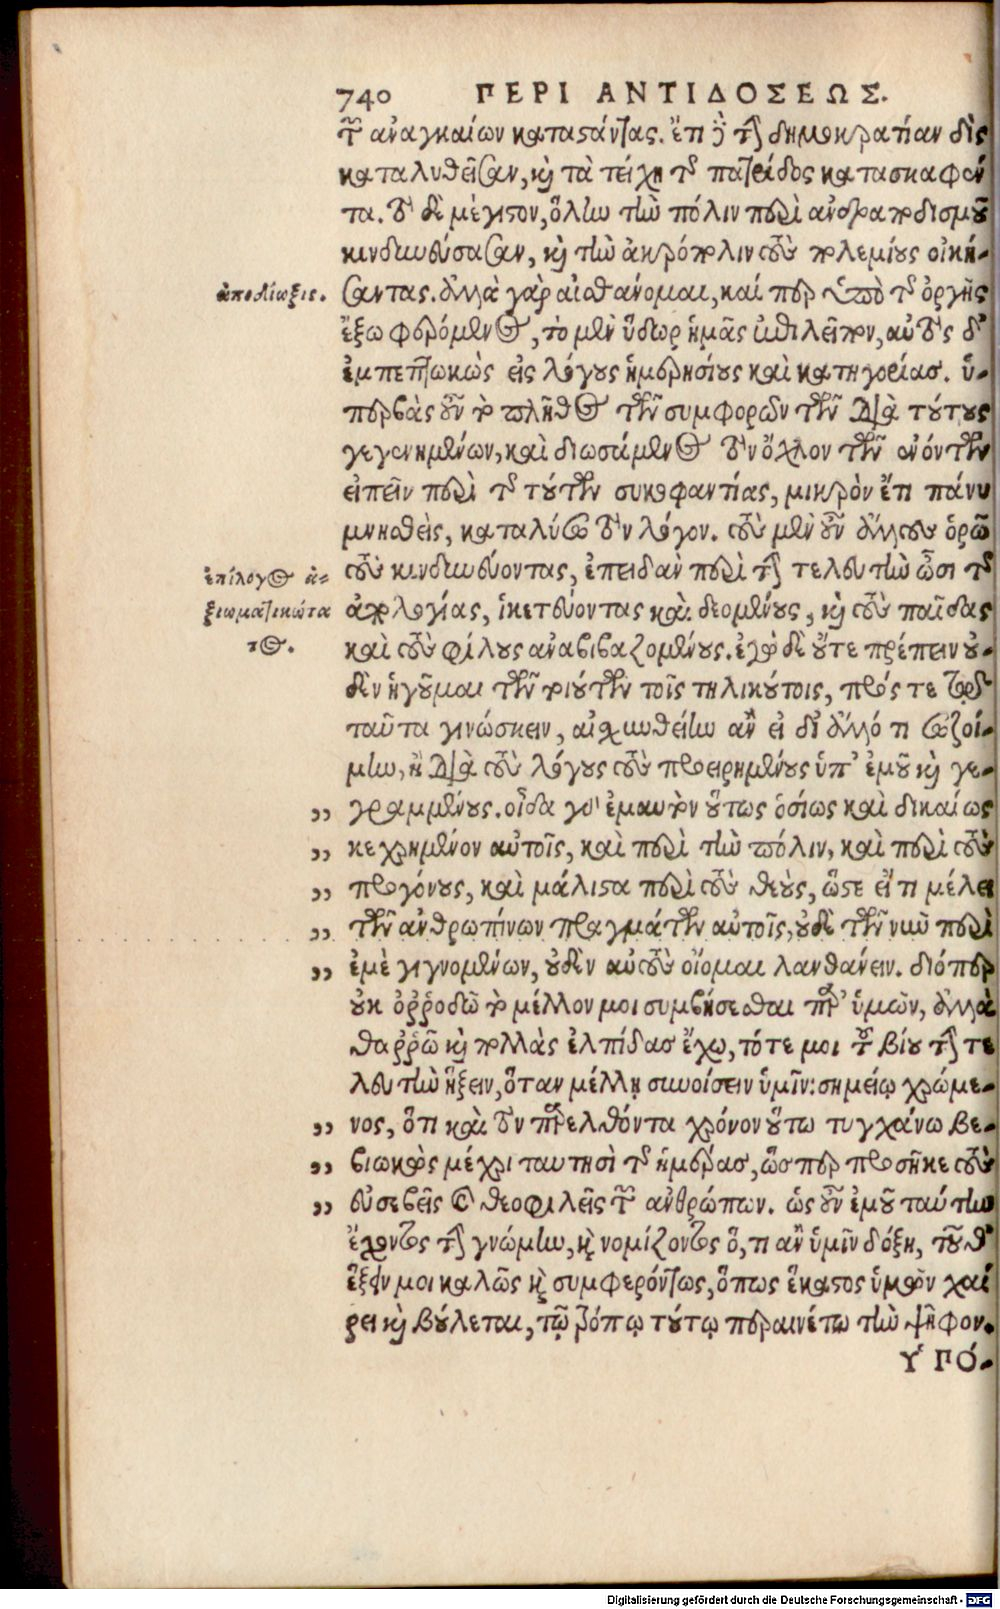 740 ΠΕΡΙ ΑΝΤΙΔΟΣΕΩΣ.
τῶν ἀναγκαίων καταστάντας. ἔτι δὲ τὴν δημοκρατίαν δὶς
καταλυθεῖσαν, καὶ τὰ τείχη τῆς πατρίδος κατασκαφέν
τα. τὸ δὲ μέγιστον, ὅλην τὴν πόλιν περὶ ἀνδραποδισμοῦ
κινδυνεύσασαν, καὶ τὴν ἀκρόπολιν τοὺς πολεμίους οἰκή-
ἀποδίωξις. σαντας. ἀλλὰ γὰρ αἰσθάνομαι, καί περ ὑπὸ τῆς ὀργῆς
ἔξω φερόμενος, τὸ μὲν ὕδωρ ἡμᾶς ἐπιλεῖπον, αὐτὸς δ'
ἐμπεπτωκὼς εἰς λόγους ἡμερησίους καὶ κατηγορίας. ὑ-
περβὰς οὖν τὸ πλῆθος τῶν συμφορῶν τῶν διὰ τούτους
γεγενημένων, καὶ διωσάμενος τὸν ὄχλον τῶν ἐνόντων
εἰπεῖν περὶ τῆς τούτων συκοφαντίας, μικρὸν ἔτι πάνυ
μνησθεὶς, καταλύσω τὸν λόγον. τοὺς μὲν οὖν ἄλλους ὁρῶ
ἐπίλογος ἀ- τοὺς κινδυνεύοντας, ἐπειδὰν περὶ τὴν τελευτὴν ὦσι τῆς
ξιωματικώτα ἀπολογίας, ἱκετεύοντας καὶ δεομένους, καὶ τοὺς παῖδας
τος. καὶ τοὺς φίλους ἀναβιβαζομένους. ἐγὼ δὲ οὔτε πρέπειν οὐ-
δὲν ἡγοῦμαι τῶν τοιούτων τοῖς τηλικούτοις, πρός τε τῷ
ταῦτα γινώσκειν, αἰσχυνθείην ἂν εἰ δι' ἄλλό τι σωζοί-
μην, ἢ διὰ τοὺς λόγους τοὺς προειρημένους ὑπ' ἐμοῦ καὶ γε-
„ γραμμένους. οἶδα γὰρ ἐμαυτὸν οὕτως ὁσίως καὶ δικαίως
„ κεχρημένον αὐτοῖς, καὶ περὶ τὴν πόλιν, καὶ περὶ τοὺς
„ προγόνους, καὶ μάλιστα περὶ τοὺς θεοὺς, ὥστε εἴ τι μέλει
„ τῶν ἀνθρωπίνων πραγμάτων αὐτοῖς, οὐδὲ τῶν νῦν περὶ
„ ἐμὲ γιγνομένων, οὐδὲν αὐτοὺς οἴομαι λανθάνειν. διόπερ
οὐκ ὀῤῥωδῶ τὸ μέλλον μοι συμβήσεσθαι παρ' ὑμῶν, ἀλλὰ
θαῤῥῶ καὶ πολλὰς ἐλπίδας ἔχω, τότε μοι τοῦ βίου τὴν τε
λευτὴν ἥξειν, ὅταν μέλλῃ συνοίσειν ὑμῖν: σημείῳ χρώμε-
„ νος, ὅτι καὶ τὸν παρελθόντα χρόνον οὕτω τυγχάνω βε-
„ βιωκὼς μέχρι ταυτησὶ τῆς ἡμέρας, ὥσπερ προσῆκε τοὺς
„ εὐσεβεῖς καὶ θεοφιλεῖς τῶν ἀνθρώπων. ὡς οὖν ἐμοῦ ταύτην
ἔχοντος τὴν γνώμην, καὶ νομίζοντος ὅ, τι ἂν ὑμῖν δόξῃ, τοῦθ'
ἕξειν μοι καλῶς καὶ συμφερόντως, ὅπως ἕκαστος ὑμῶν χαί
ρει καὶ βούλεται, τῷ τρόπῳ τούτῳ περαινέτω τὴν ψῆφον.
ΥΠΟ-
Digitalisierung gefördert durch die Deutsche Forschungsgemeinschaft - DFG